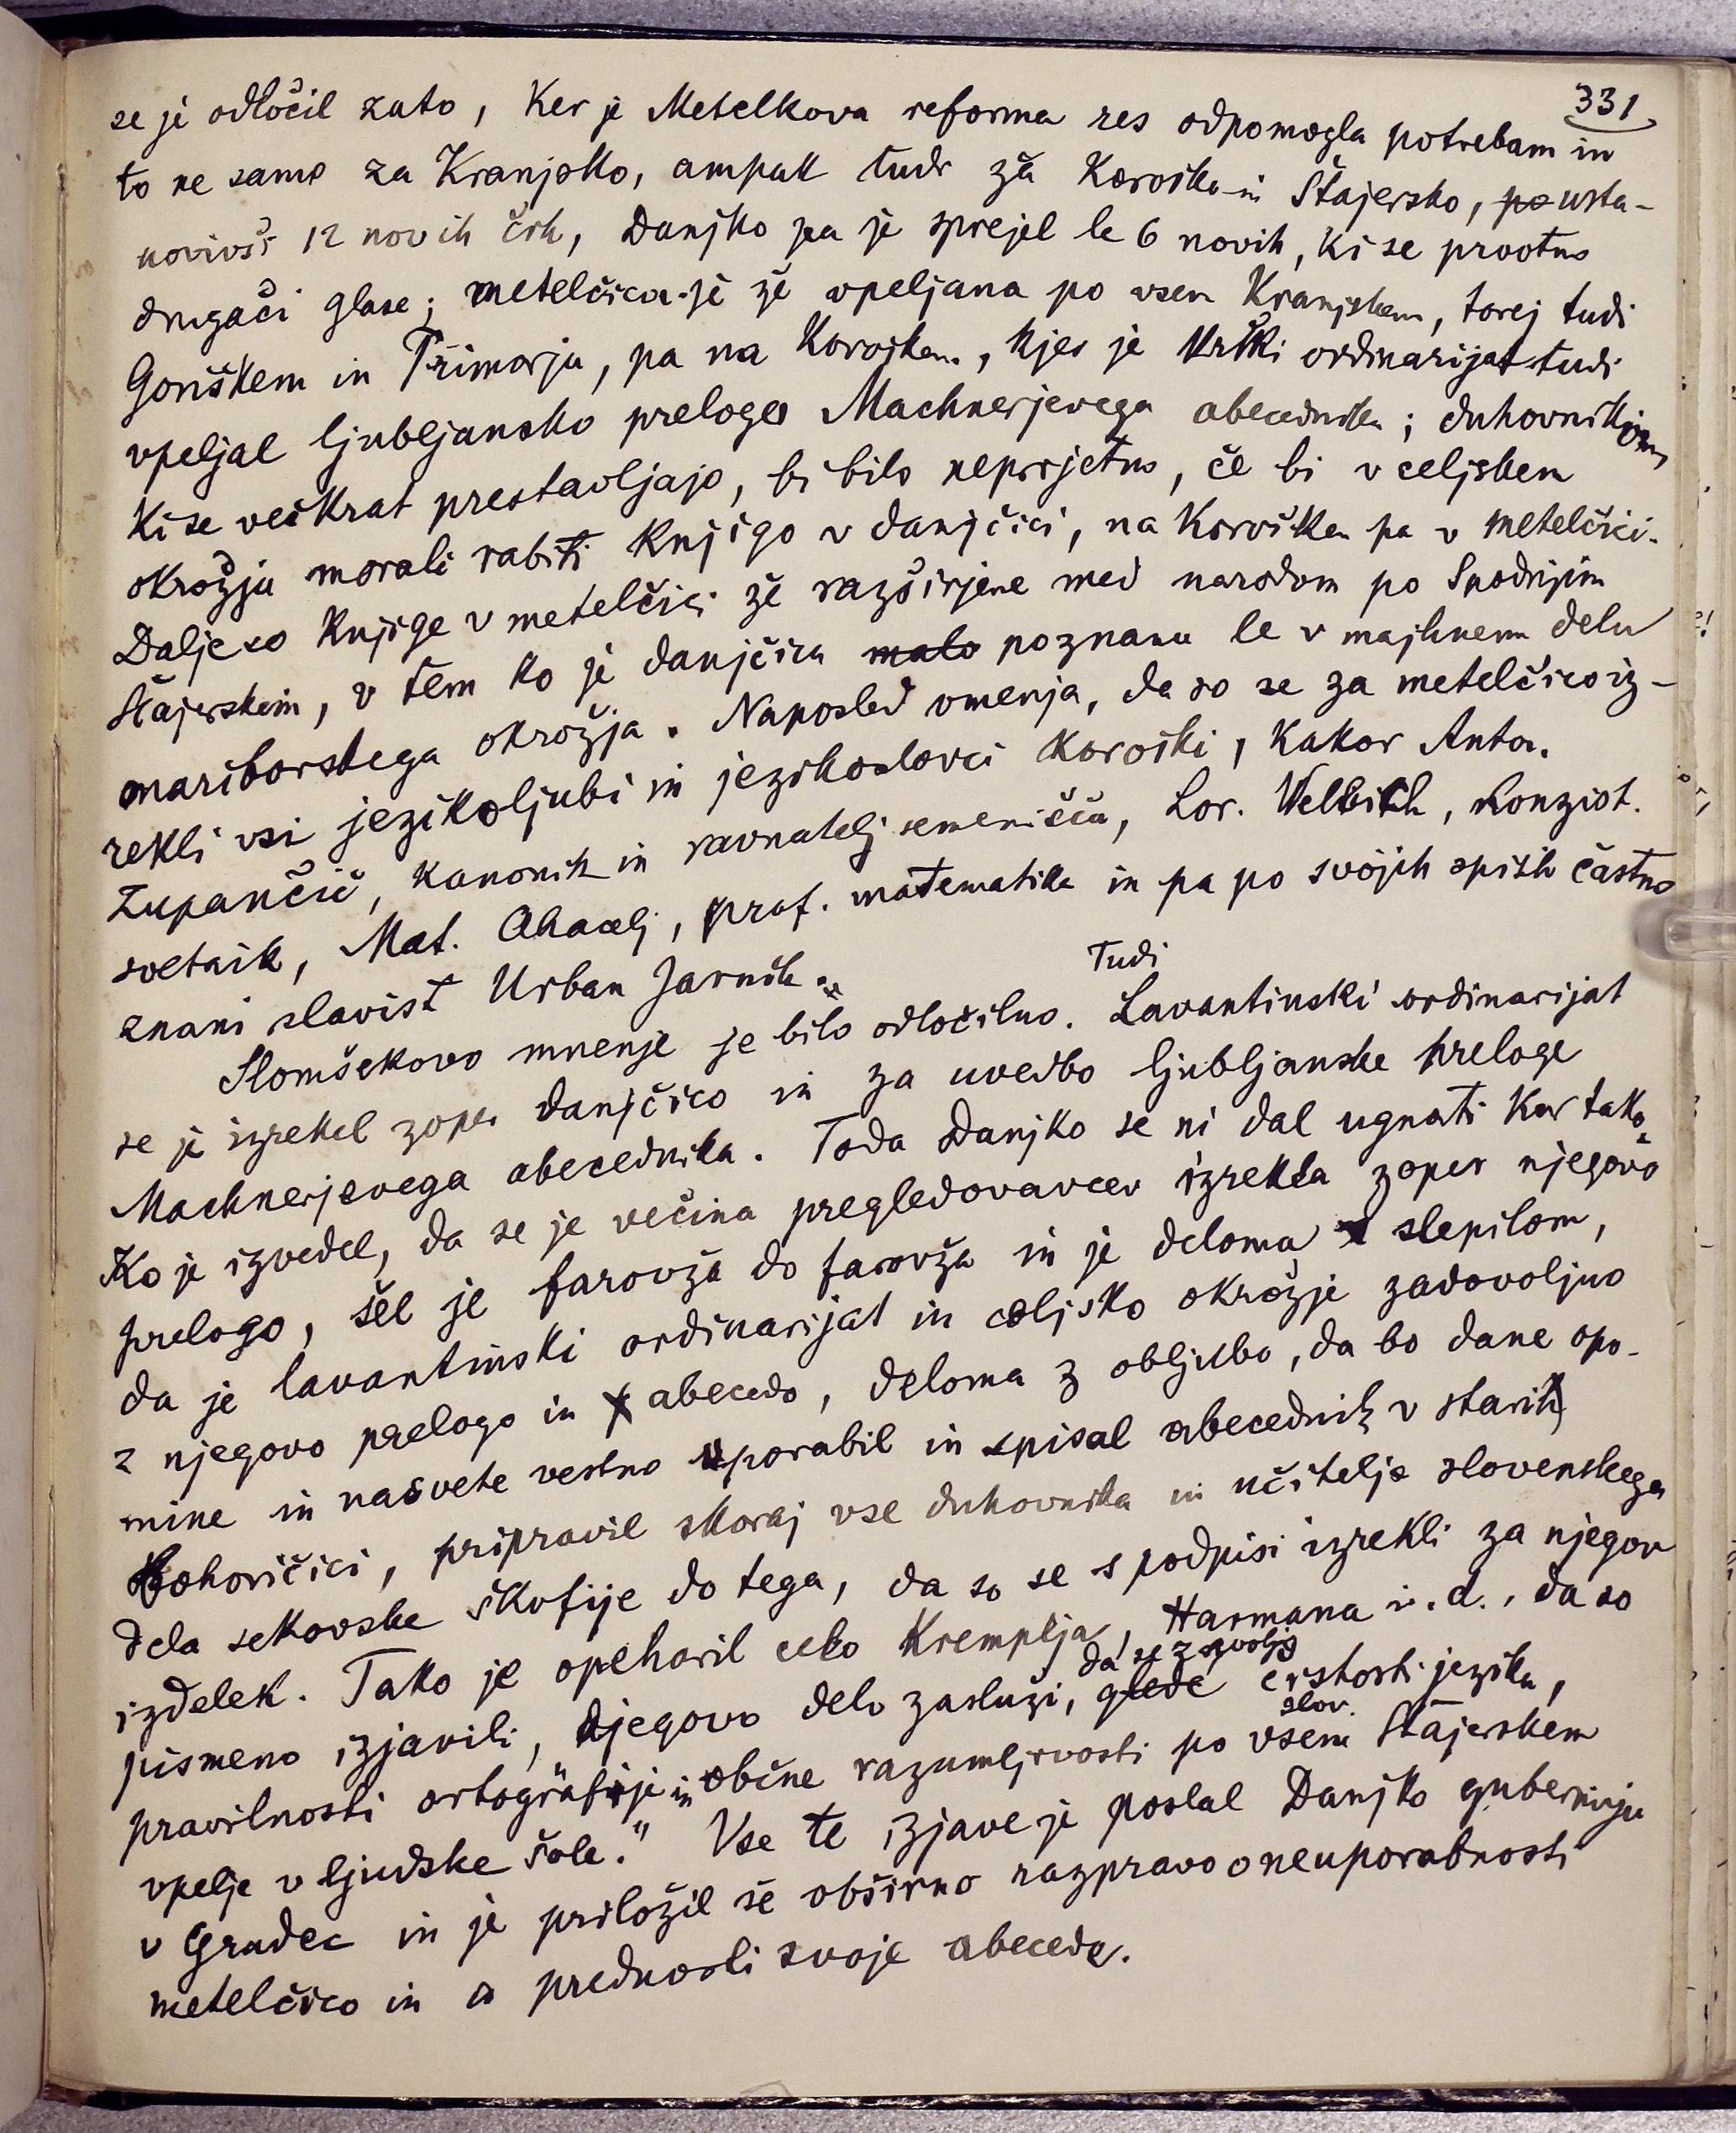 331
se je odločil zato, ker je Metelkova reforma res odpomogla potrebam in
to ne samo za Kranjsko, ampak tudi za Koroško in Štajersko, po usta-
novivši 12 novih črk, Danjko pa je sprejel le 6 novih, ki se prostno
drugači glase; metelčica je že vpeljana po vsem Kranjskem, torej tudi
Goriškem in Primorju, pa na Koroškem, kjer je Krški ordinarijat tudi
vpeljal ljubljansko prelogo Machnerjevega abecednika; duhovnikom,
ki se večkrat prestavljajo, bi bilo neprijetno, če bi v celjskem
okrožju morali rabiti knjigo v danjčici, na Koroškem pa v metelčici.
Dalje so knjige v metelčici že razširjene med narodom po Spodnjim
Štajerskim, v tem ko je danjčica malo poznana le v majhnem delu
mariborskega okrožja. Naposled omenja, da so se za metelčico iz-
rekli vsi jezikoljubi in jezikoslovci koroški, kakor Anton.
Zupančič, kanonik in ravnatelj semenišča, Lor. Welbich, konzist.
svetnik, Mat. Ahacelj, prof. matematike in pa po svojih spisih častno
znani slavist Urban Jarnik."
Tudi
Slomšekovo mnenje je bilo odločilno. Lavantinski ordinarijat
se je izrekel zoper danjčico in za uvedbo ljubljanske preloge
Machnerjevega abecednika. Toda Danjko se ni dal ugnati kar tako.
Ko je izvedel, da se je večina pregledovavcev izrekla zoper njegovo
prelogo, šel je farovža do farovža in je deloma s slepilom,
da je lavantinski ordinarijat in celjsko okrožje zadovoljno
z njegovo prelogo in abecedo, deloma z obljubo, da bo dane opo-
mine in nasvete vestno uporabil in spisal abecednik v stari
Bohoričici, pripravil skoraj vse duhovnike in učitelje slovenskega
dela sekovske škofije do tega, da so se s podpisi izrekli za njegov
izdelek. Tako je opeharil celo Kremplja, Harmana i. d., da so
da se z ozirom
pismeno izjavili, njegovo delo zasluži, glede čistosti jezika,
slov.
pravilnosti ortografije in občne razumljivosti po vsem Štajerskem
vpelje v ljudske šole." Vse te izjave je poslal Danjko guberniju
v Gradec in je priložil še obširno razpravo o neuporabnosti
metelčico in o prednosti svoje abecede.